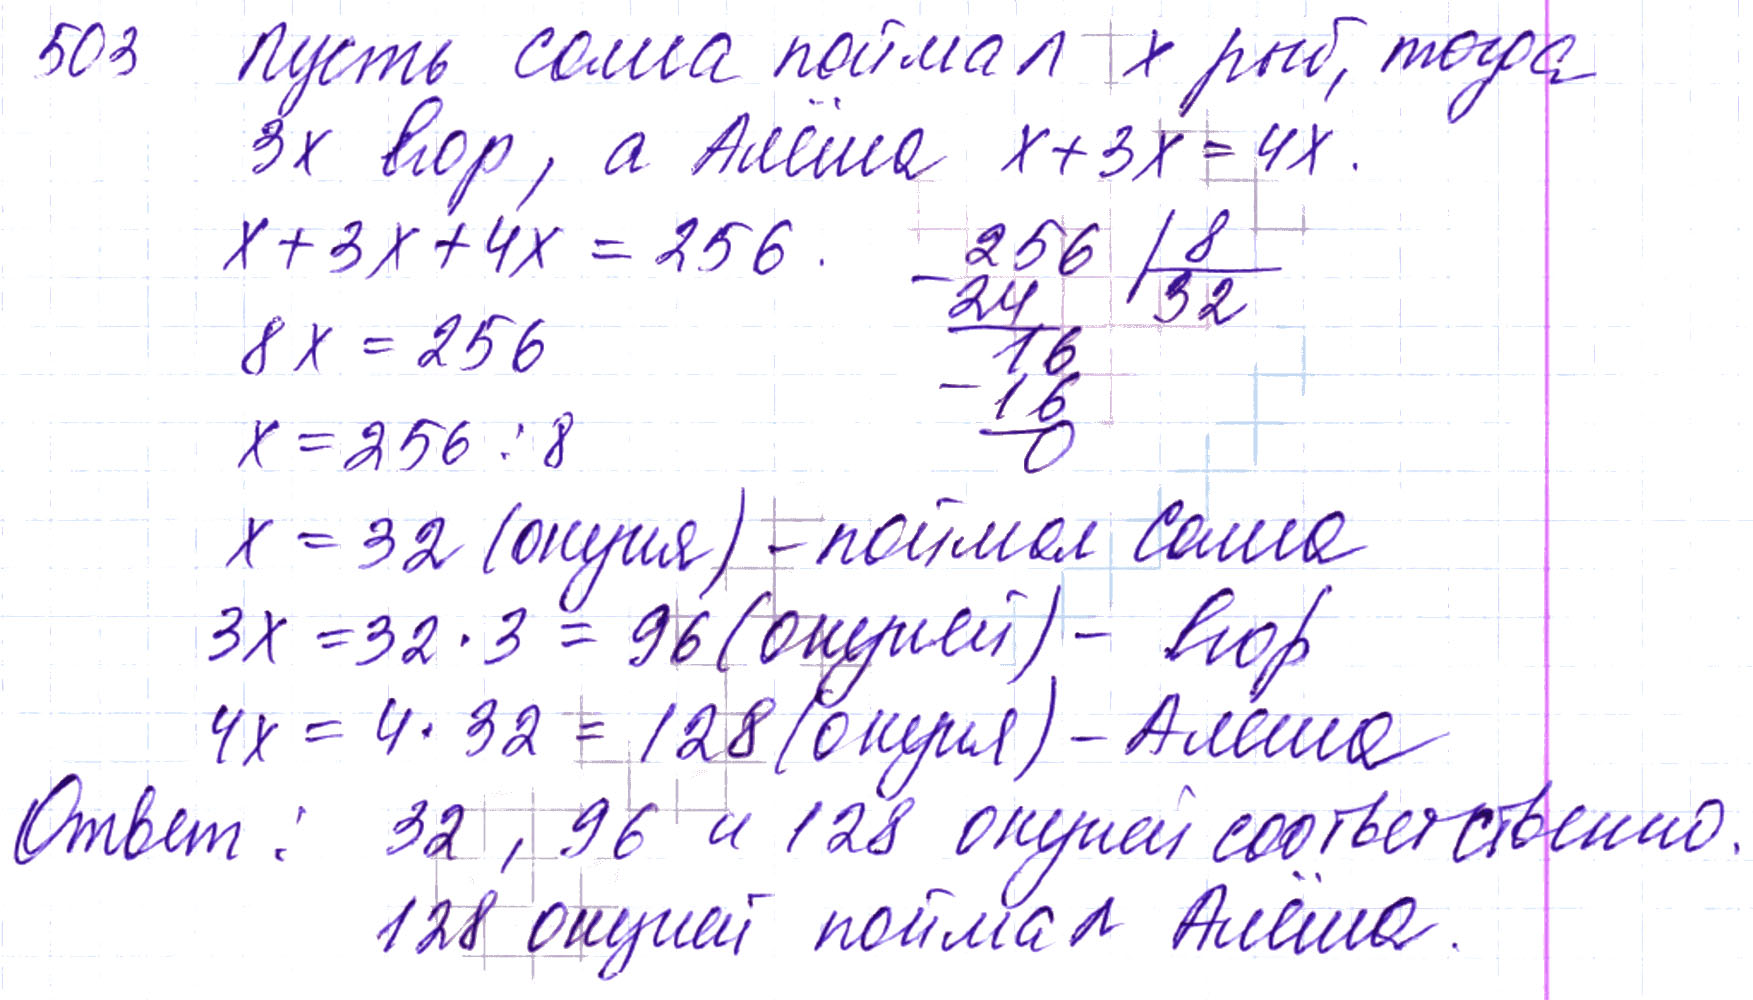 503 Пусть Саша поймал x рыб, тогда
3x Егор, а Алёша x+3x=4x.
x+3x+4x = 256. 256 | 8
- 24 32
8x = 256 16
- 16
x = 256 : 8 0
x = 32 (окуня) - поймал Саша
3x = 32 · 3 = 96 (окуней) - Егор
4x = 4 · 32 = 128 (окуня) - Алеша
Ответ: 32, 96 и 128 окуней соответственно.
128 окуней поймал Алёша.